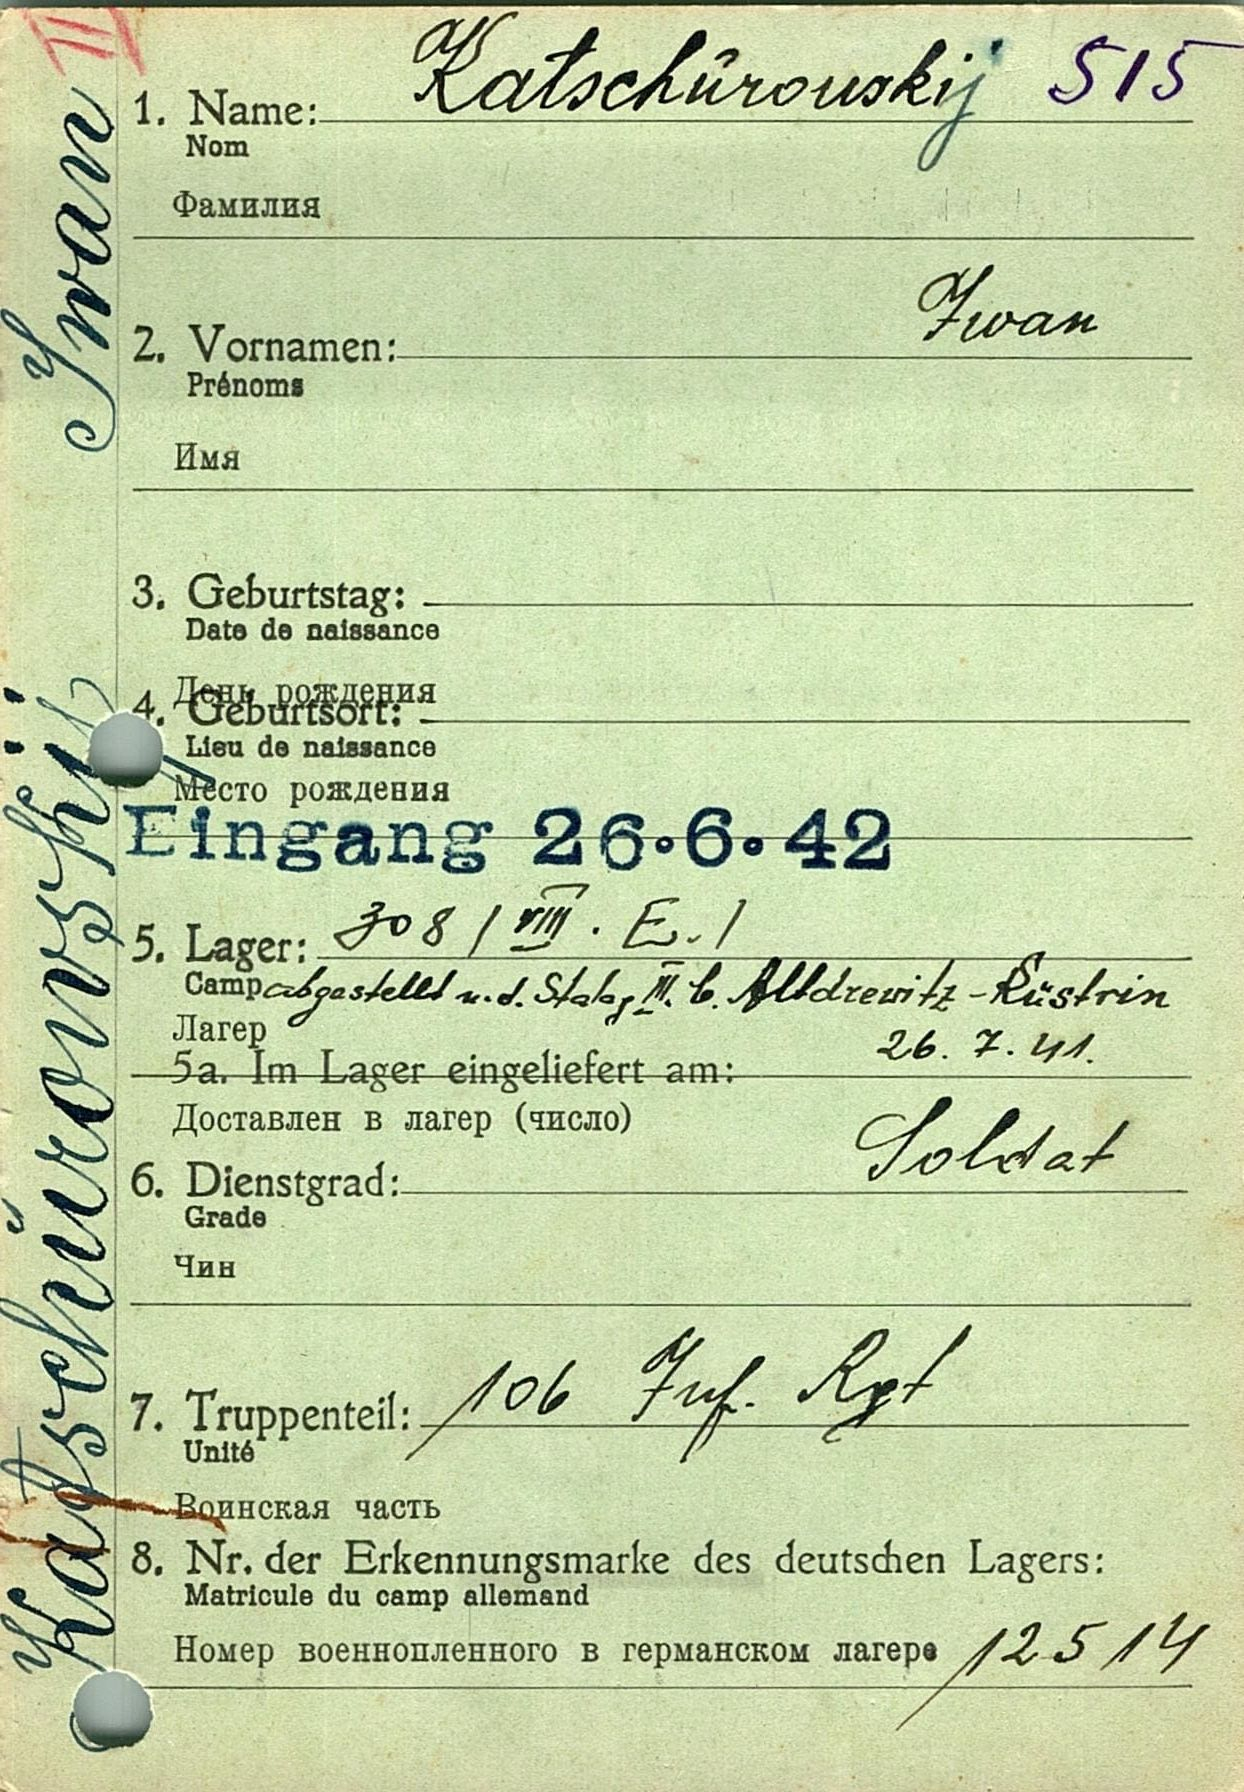 II
Katschŭrowskij 515
1. Name:
Nom
Фамилия
Iwan
2. Vornamen:
Prénoms
Имя
3. Geburtstag:
Date de naissance
День рождения
4. Geburtsort:
Lieu de naissance
Место рождения
Eingang 26.6.42
5. Lager: 308 / VIII. E. /
Camp abgestellt n. d. Stalag III. C. Altdrewitz-Küstrin
Лагер
26. 7. 41.
5a. Im Lager eingeliefert am:
Доставлен в лагер (число)
Soldat
6. Dienstgrad:
Grade
Чин
7. Truppenteil: 106 Inf. Rgt
Unité
Воинская часть
8. Nr. der Erkennungsmarke des deutschen Lagers:
Matricule du camp allemand
Номер военнопленного в германском лагере 12514
Katschŭrowskij Iwan